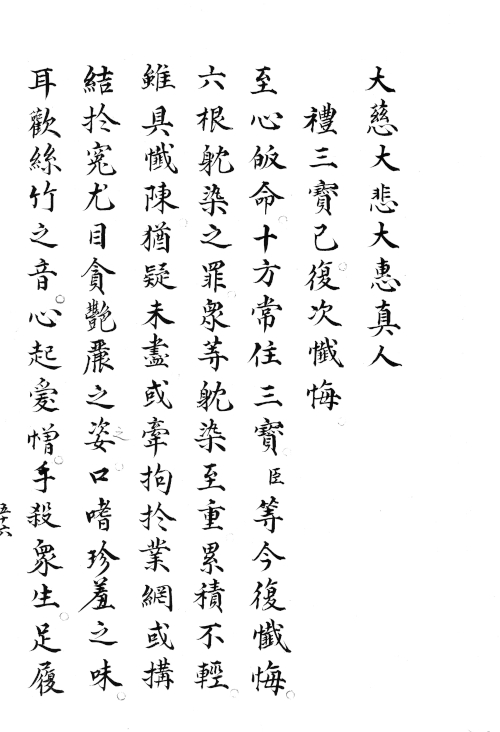 大慈大悲大惠真人
禮三寶已。復次懺悔。
至心皈命。十方常住三寶。臣等今復懺悔。
六根躭染之罪。衆等躭染至重累積不輕。
雖具懺陳。猶疑未盡或牽拘扵業網或搆
結扵寃尤目貪艷麗之姿。口嗜珍羞之味。
耳歡絲竹之音。心起愛憎。手殺衆生。足履
五十六